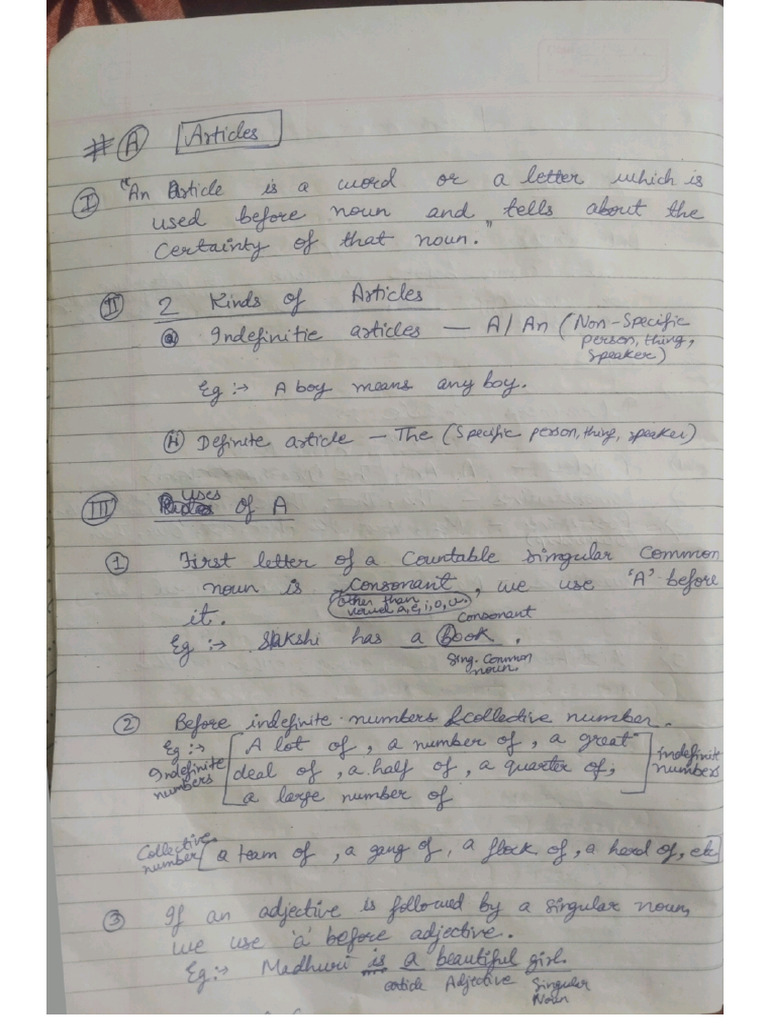 # A Articles
I "An Article is a word or a letter which is
used before noun and tells about the
Certainty of that noun."
II 2 Kinds of Articles
i Indefinitie articles — A/An (Non-Specific
person, thing,
speaker)
Eg :→ A boy means any boy.
ii Definite article — The (Specific person, thing, speaker)
III uses of A
1 First letter of a Countable singular Common
noun is consonant, we use 'A' before
(other than
vowel a, e, i, o, u)
it.
Consonant
Eg :→ Sakshi has a Book.
Sing. Common
noun.
2 Before indefinite numbers & collective number.
Eg :→ Indefinite numbers [A lot of, a number of, a great
deal of, a half of, a quarter of,
a large number of] indefinite numbers
Collective number [a team of, a gang of, a flock of, a herd of, etc]
3 If an adjective is followed by a singular noun,
we use 'a' before adjective.
Eg :→ Madhuri is a beautiful girl.
article Adjective Singular
Noun